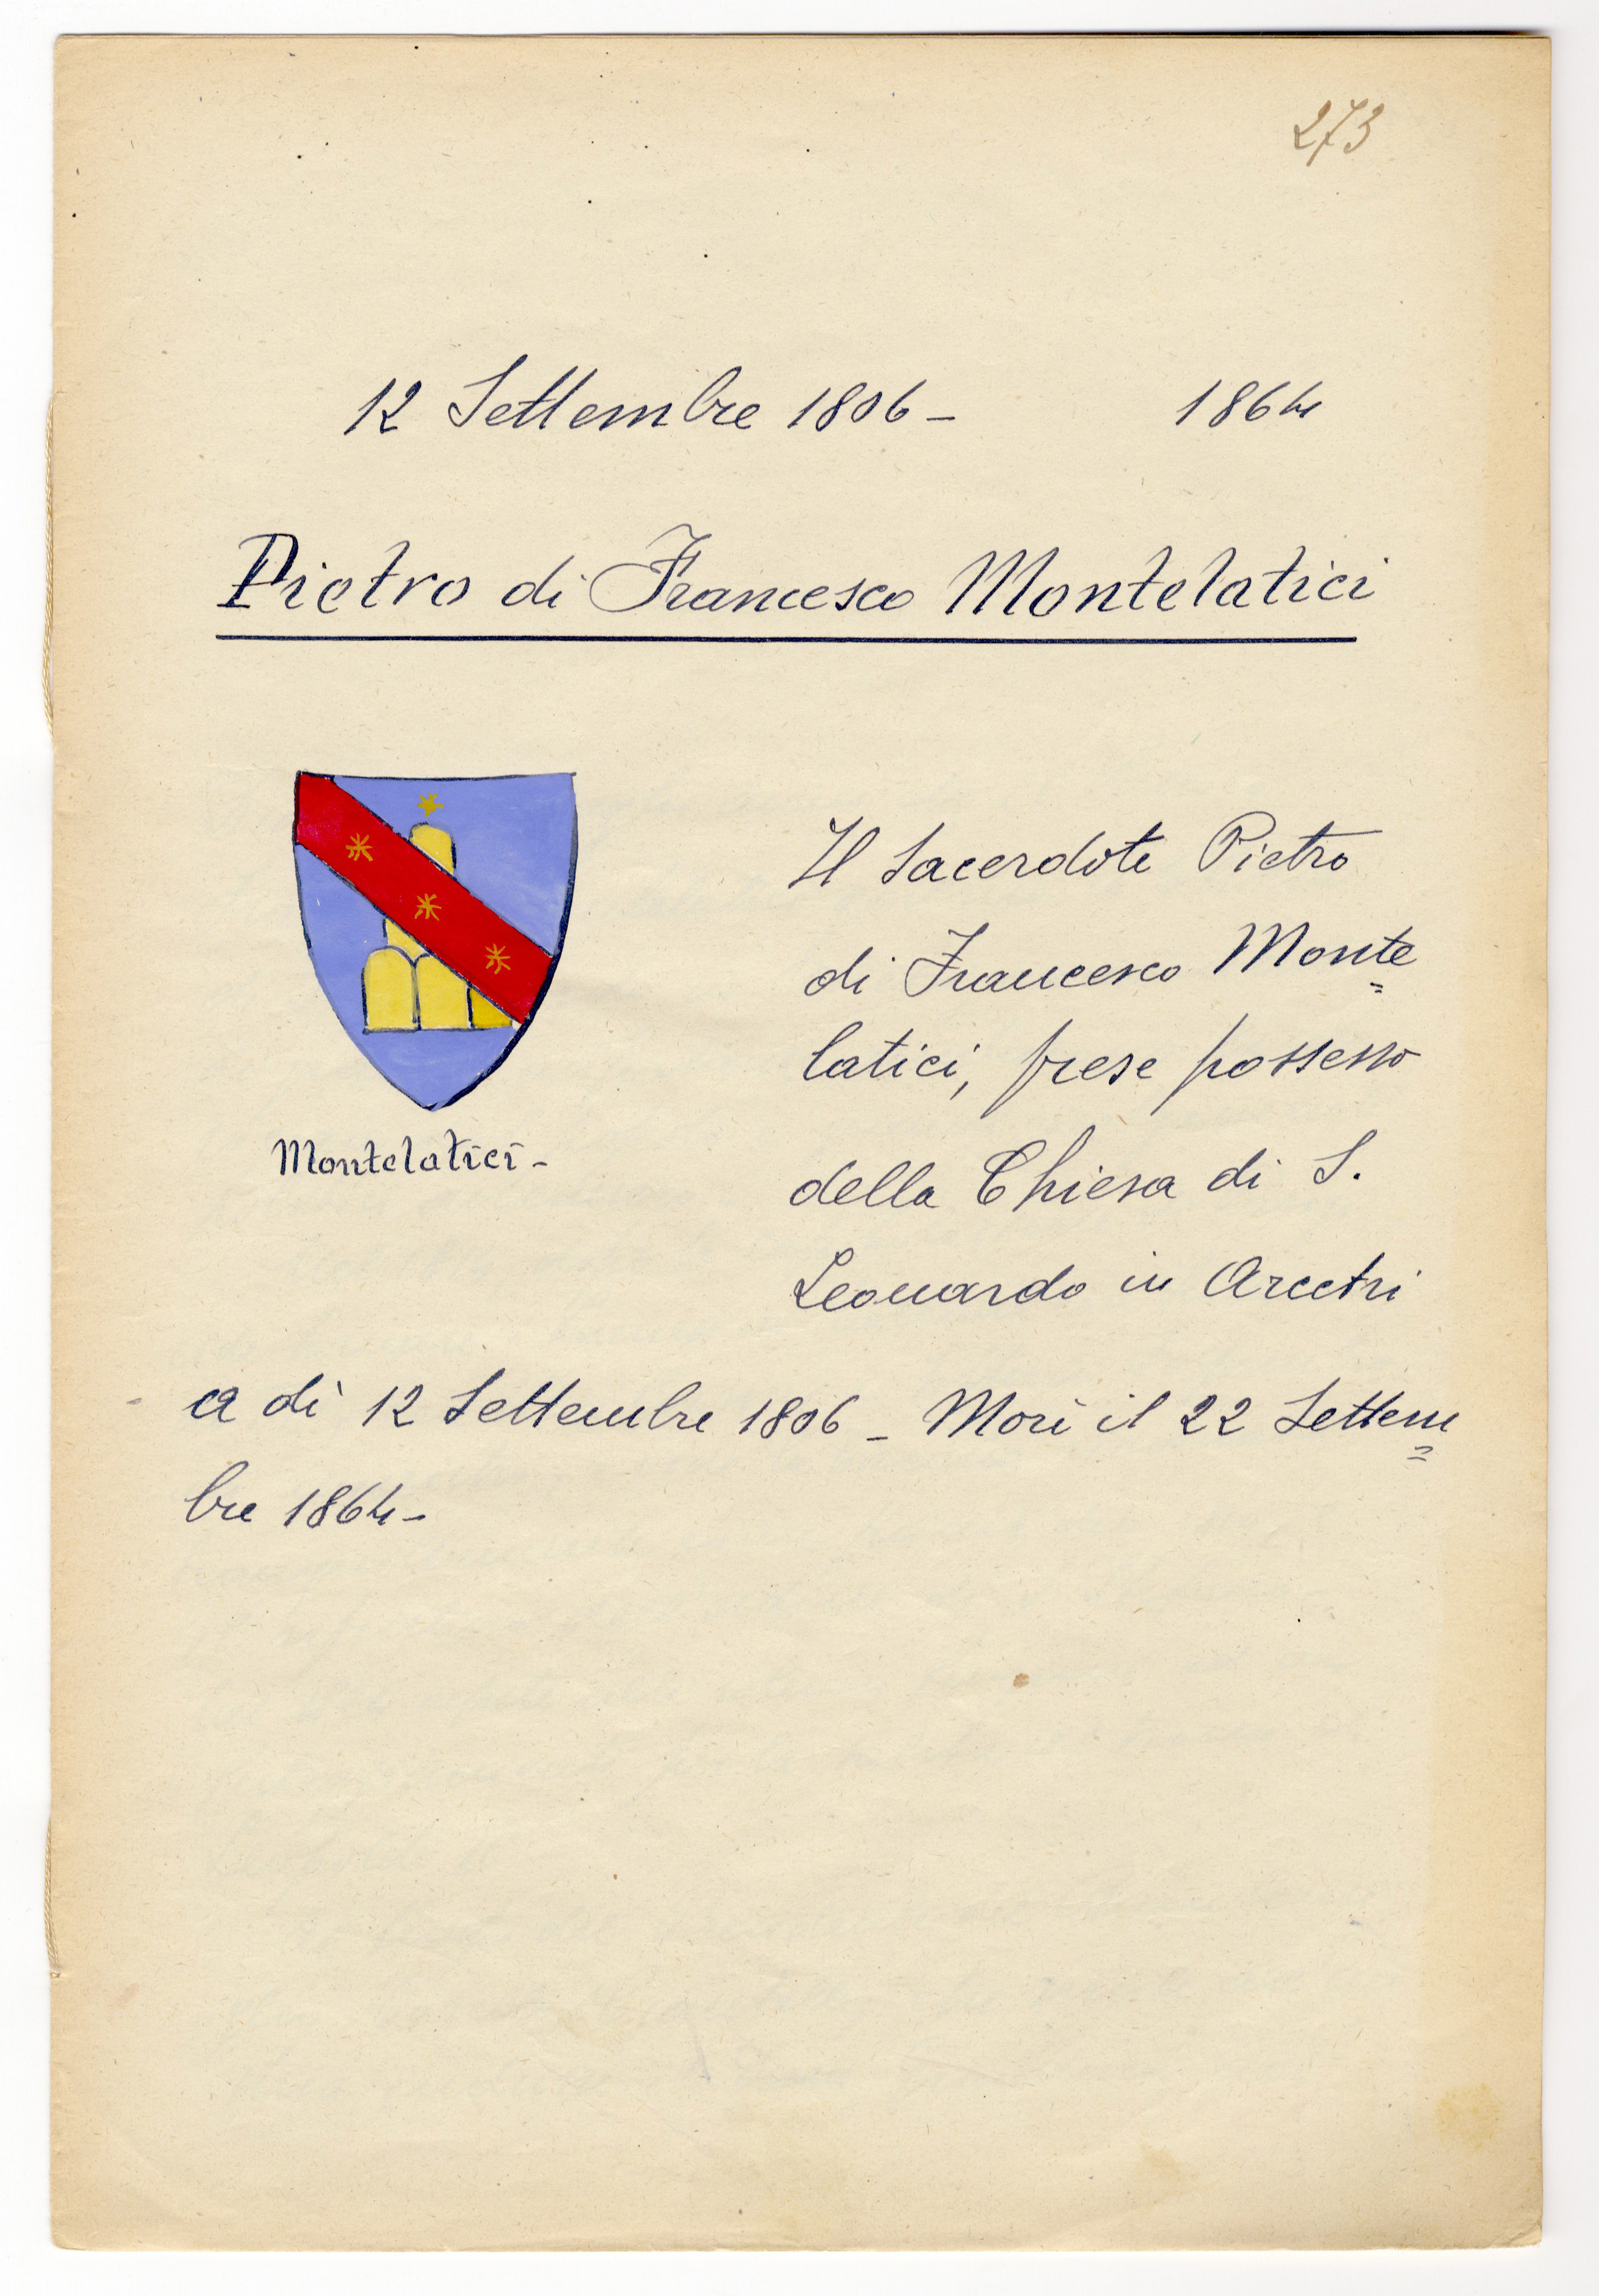 273
12 Settembre 1806 – 1864
Pietro di Francesco Montelatici
Montelatici –
Il Sacerdote Pietro
di Francesco Monte=
latici, prese possesso
della Chiesa di S.
Leonardo in Arcetri
a dì 12 Settembre 1806 – Morì il 22 Settem=
bre 1864 –